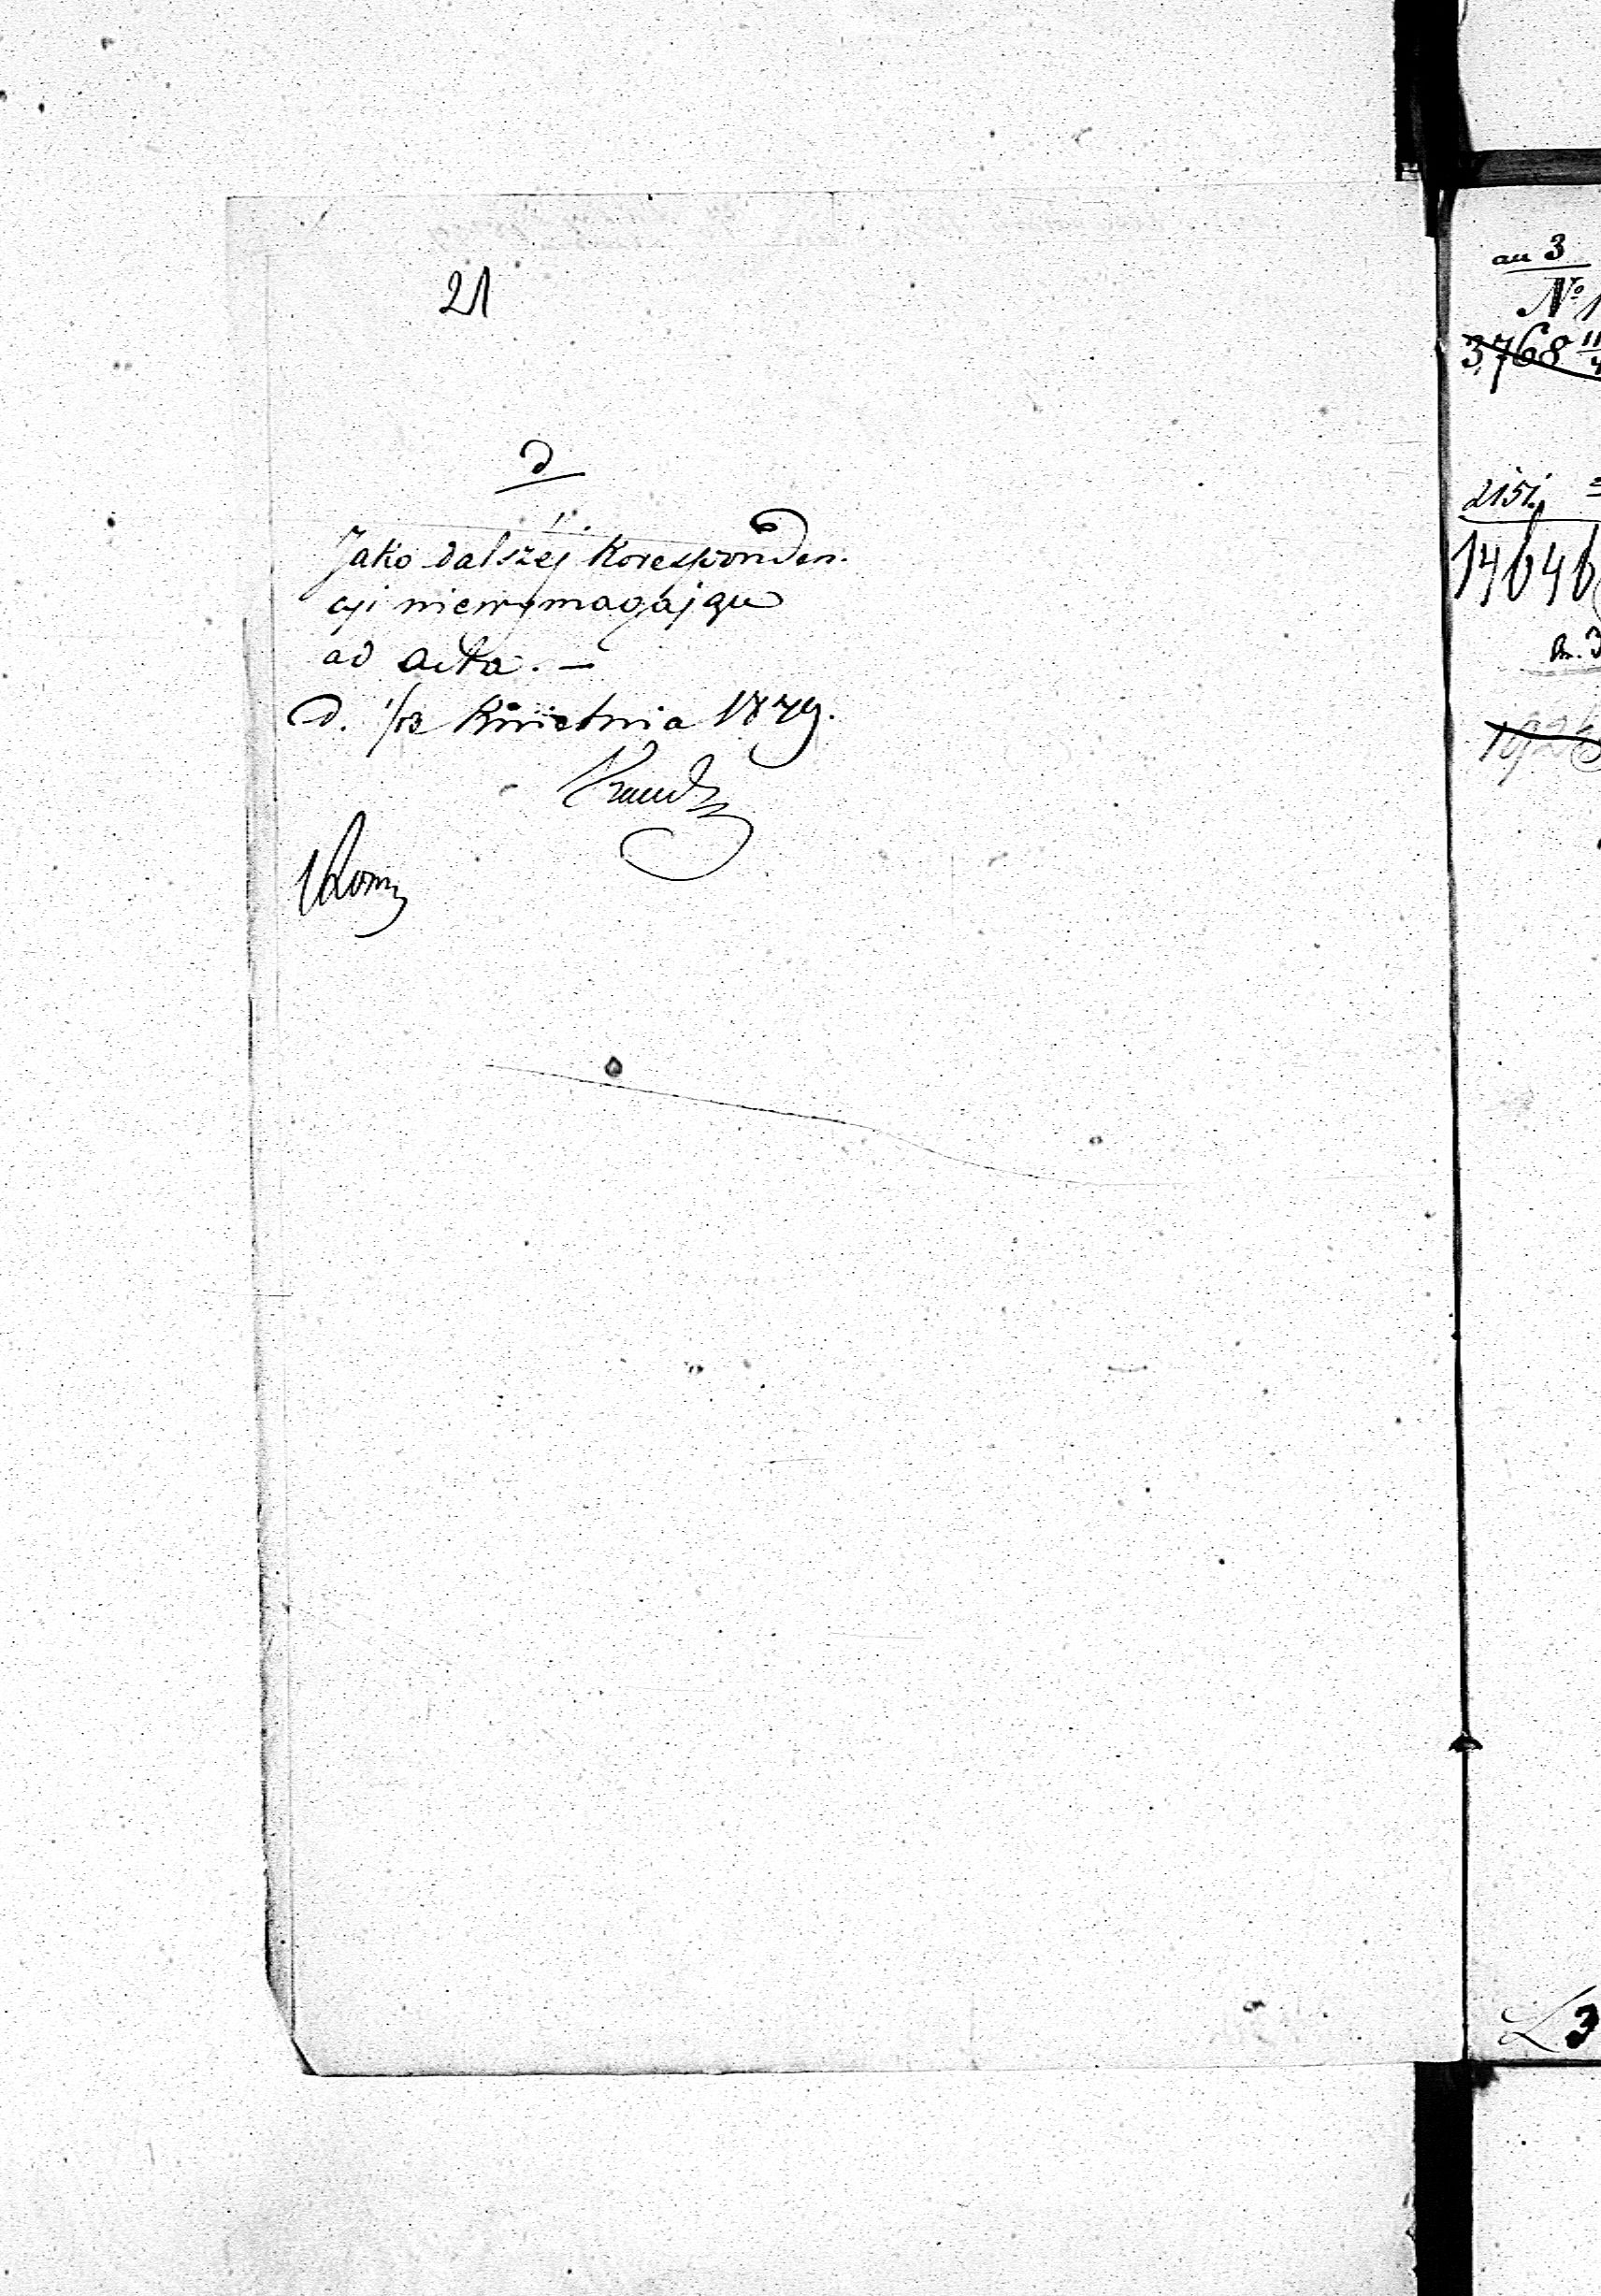 21
D
Jako dalszej Koresponden.
cyi niewymagające
ad acta. —
D. 1/13 Kwietnia 1879.
au 3
No 1
3768 11
2151.
14646
L 3